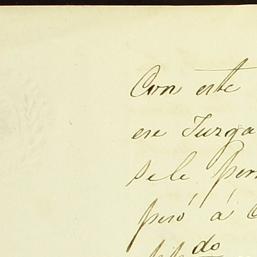 Con este
ese Juzga
se le per
pero á